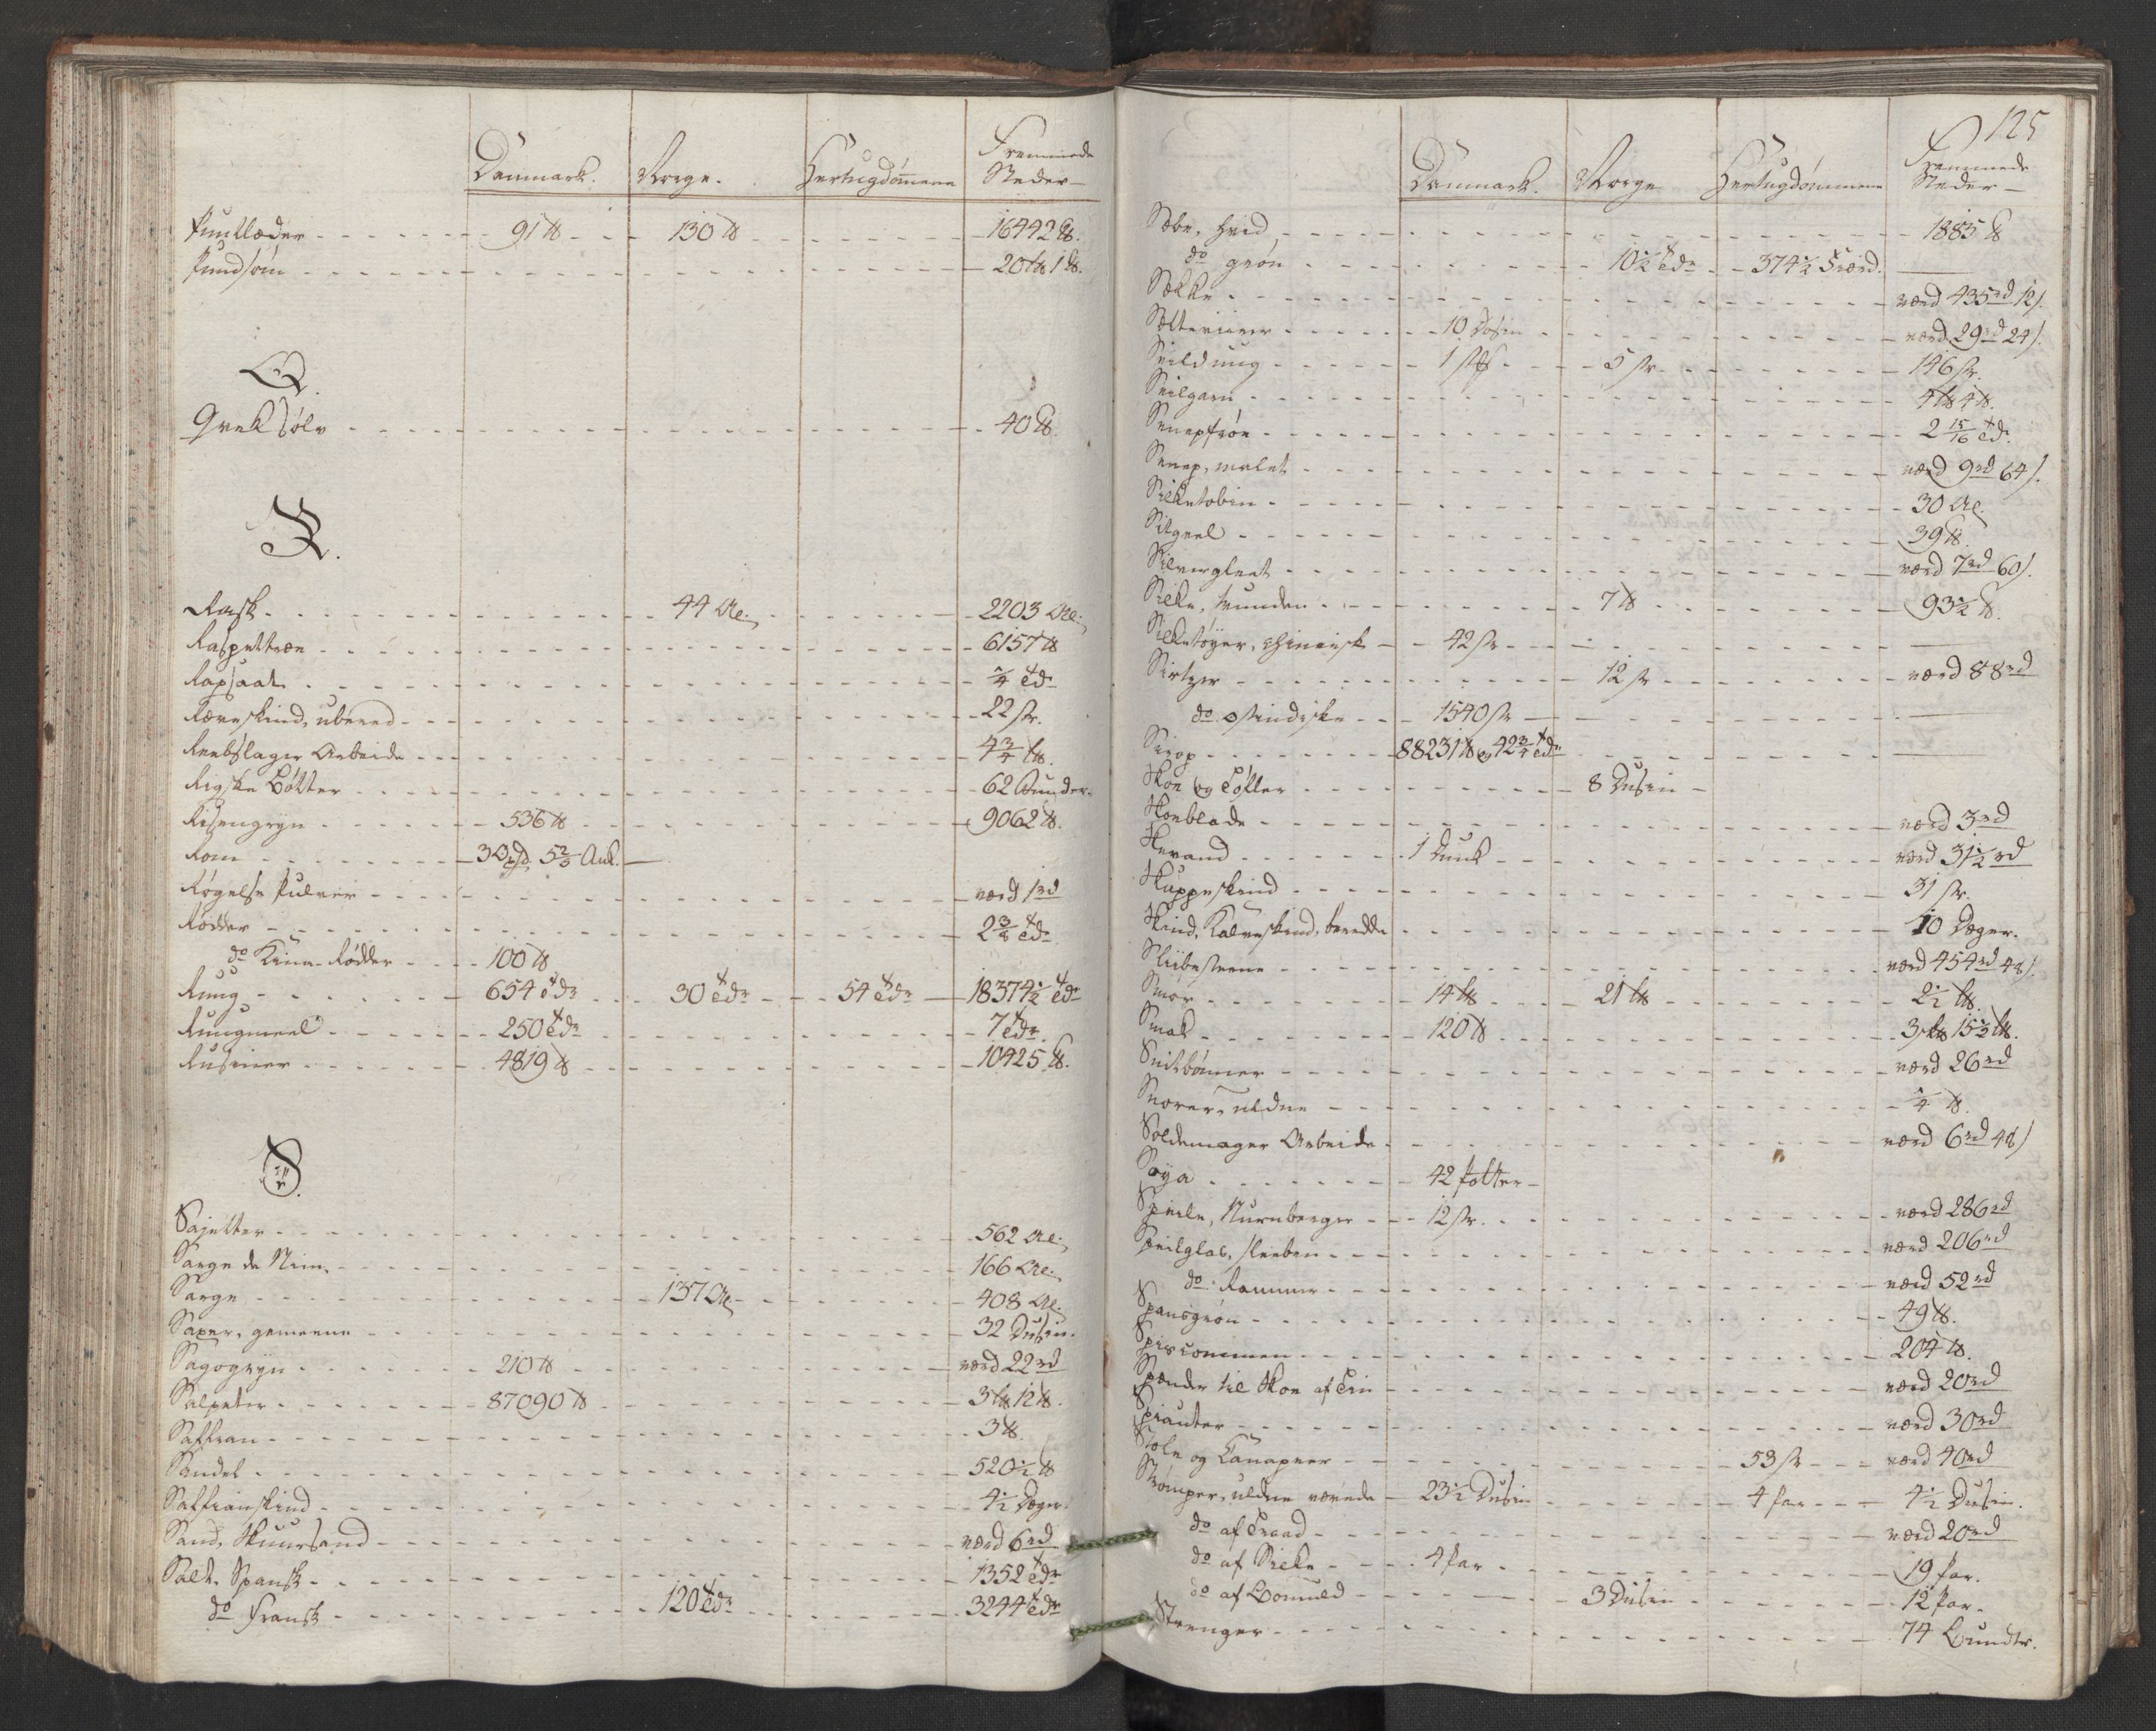 Danmark. Norge. Hertugdømmene Fremmede Steder
Pundlæder 91 ℔ 130 ℔ 16442 ℔.
Pundsøm 20 L℔ 1 ℔.
Q.
Qveksølv 40 ℔.
R.
Rask 44 Al. 2203 Al.
Raspettræe 6157 ℔
Rapsaat ¼ tdr
Ræveskind, ubered 22 st.
Reebslager Arbeide 4¾ L℔.
Rigske Bøtter 62 Bunder.
Risengryn 536 ℔ 9062 ℔.
Rom 5⅔ Ank.
Røgelse Pulver værd 1 rd
Rødder 2⅜ tdr
do Kina-Rødder 100 ℔
Rug 654 tdr 30 tdr 54 tdr 18374½ tdr
Rugmeel 250 tdr 7 tdr.
Rusiner 4819 ℔ 10425 ℔.
S.
Sajetter 562 Al.
Sarge de Nim. 166 Al.
Sarge 137 Al 408 Al.
Saxer, gemeene 32 Dusin.
Sagogryn 210 ℔ værd 22 rd
Salpeter 87090 ℔ 3 L℔ 12 ℔.
Saffran 3 ℔.
Sandel 520½ ℔
Saffianskind 4½ Deger.
Sand, Skuursand værd 6 rd
Salt, Spansk 1352 tdr
do Fransk 120 tdr 3244 tdr
125
Danmark. Norge Hertugdømmene Fremmede Steder
Sæbe, hvid 1885 ℔
do grøn 10½ tdr 374½ Fierd.
Sække værd 435 rd 12 s.
Selteriiner 10 Dosin værd 29 rd 24 s.
Seildug 1 st 5 st. 146 st.
Seilgarn 4 L℔ 4 ℔.
Senepfrøe 2 15/16 tdr.
Senep, malet værd 9 rd 64 s.
Silketobin 30 Al.
Sitgeel 39 ℔.
Silvergløt værd 7 rd 60 s.
Silke, tvunden 7 ℔ 93½ ℔.
Silketøyer, chinesisk 42 st
Sirtzer 12 st værd 88 rd
do. ostindiske 1540 st
Sirop 88231 ℔ og 42¾ tdr
Skoe og Tøfler 8 Dusin
Skeeblade værd 3 rd
Skevand 1 Dunk værd 31½ rd
Skuppeskind 31 st.
Skind, Kalveskind, beredde 10 Deger.
Sliibesteene værd 454 rd 48 s.
Smør 14 L℔ 21 L℔ 2½ L℔
Smak 120 ℔ 3 s℔ 15½ L℔.
Snitbønner værd 26 rd
Snorer, uldne ¼ ℔.
Soldemager Arbeide værd 6 rd 48 s
Soya 42 Potter
Speile, Nurnberger 12 st. værd 286 rd
Speilglas, sleeben værd 206 rd
do. Rammer værd 52 rd
Spansgrøn 49 ℔.
Spiscommen 204 ℔.
Spænder til Skoe af Tin værd 20 rd
Spiauter værd 30 rd
Stole og Canapeer 53 st værd 40 rd
Strømper, uldne vævede 23½ Dusin 4 Par 4½ Dusin.
do af Traad værd 20 rd
do af Silke 4 Par 19 Par.
do af Bomuld 3 Dusin 12 Par.
Strenger 74 Bundtr.